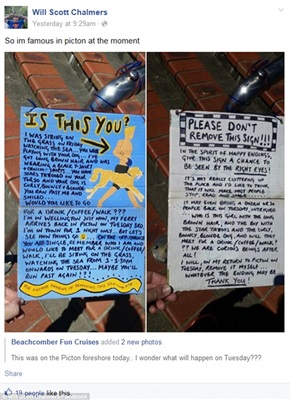 Will Scott Chalmers
Yesterday at 9:29am
So im famous in picton at the moment
IS THIS YOU?
I WAS SITTING ON
THE GRASS ON FRIDAY
WATCHING THE SEA... YOU WERE
RUNNING WITH YOUR DOG...
GOT LONG BROWN HAIR AND WAS
WEARING A BLACK T-SHIRT
YOU HAVE
STARS TATTOOED ON YOUR
TORSO AND YOUR DOG IS
CURLY, BOUNCY & BLONDE
YOU RAN PAST ME AND
SMILED...
WOULD YOU LIKE TO GO
FOR A DRINK / COFFEE / WALK ???
I'M IN WELLINGTON JUST NOW, MY FERRY
ARRIVES BACK IN PICTON TUESDAY 3RD.
I'M IN TOWN FOR 1 NIGHT ONLY... BUT LET'S
SEE HOW THINGS GO
YOU ARE SINGLE, REMEMBER WHO I AM AND
WOULD LIKE TO MEET FOR A DRINK / COFFEE /
WALK, I'LL BE SITTING ON THE GRASS,
WATCHING THE SEA FROM
ONWARDS ON TUESDAY... MAYBE YOU'LL
RUN PAST AGAIN!
PLEASE DON'T
REMOVE THIS SIGN!!!
IN THE SPIRIT OF HAPPY ENDINGS,
GIVE THIS SIGN A CHANCE TO
BE SEEN BY THE RIGHT EYES!
IT'S NOT REALLY CLUTTERING UP
THE PLACE AND I'D LIKE TO THINK
THAT IT WILL MAKE MOST PEOPLE
STOP, READ AND SMILE!
IT MAY EVEN BRING A DOZEN OR SO
PEOPLE BACK ON TUESDAY, INTERESTED
WHO IS THIS GIRL WITH THE LONG
BROWN HAIR, AND THE GUY WITH
THE STAR TATTOOS AND THE CURLY,
BOUNCY, BLONDE DOG, AND WILL THEY
MEET FOR A DRINK / COFFEE / WALK?
WE ARE CURIOUS BEINGS AFTER
ALL!
I WILL, ON MY RETURN TO PICTON ON
TUESDAY, REMOVE IT MYSELF...
WHATEVER THE ENDING MAY BE
THANK YOU!
Beachcomber Fun Cruises added 2 new photos.
This was on the Picton foreshore today.. I wonder what will happen on Tuesday???
Share
19 people like this.